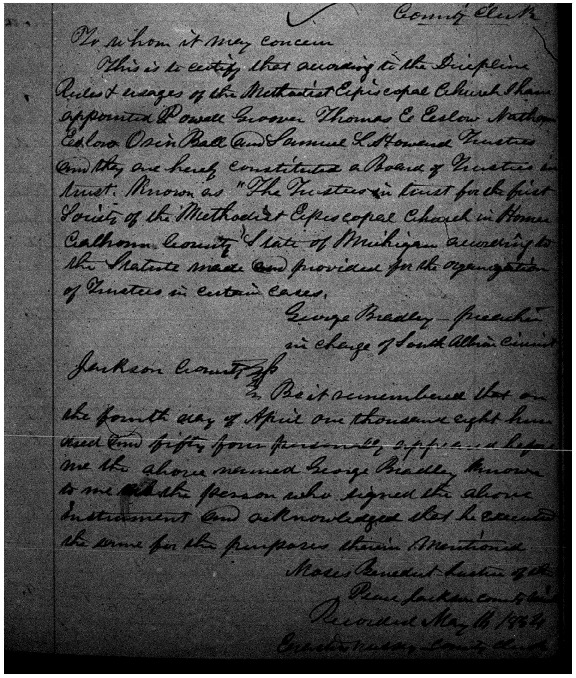 County Clerk
To whom it may concern
This is to certify that acording to the Dicipline
Rules & usages of the Methodist Episcopal Church I have
appointed Powell Groover Thomas E Eslow Nathan
Eslow Orin Ball and Samuel L Howard Trustees
and they are hereby constituted a Board of Trustees in
trust. Known as "The Trustees in trust for the first
Society of the Methodist Episcopal Church in Homer
Calhoun County" State of Michigan acording to
the Statute made and provided for the organization
of Trustees in certain cases.
George Bradley - preacher
in charge of South Albion Circuit
Jackson County ss
Be it remembered that on
the fourth day of April one thousand eight hun
dred and fifty four personally appeared before
me the above named George Bradley Known
to me the person who signed the above
instrument and acknowledged that he executed
the same for the purposes therein mentioned
Moses Benedict Justice of the
Peace Jackson County
Recorded May 16 1864
County Clerk